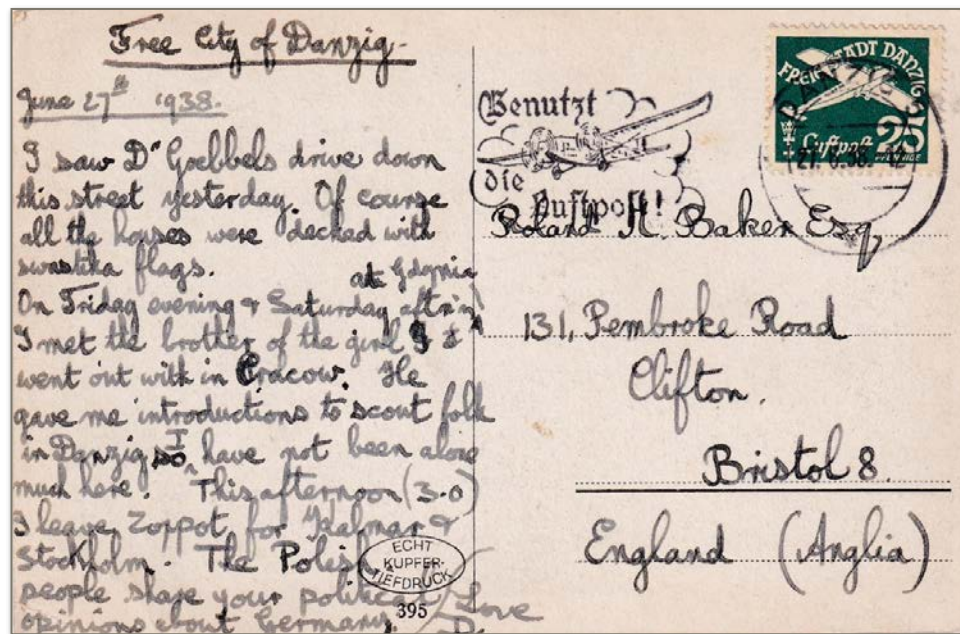 Free City of Danzig.
June 27th 1938.
I saw Dr Goebbels drive down
this street yesterday. Of course
all the houses were decked with
swastika flags.
at Gdynia
On Friday evening & Saturday aftr'n
I met the brother of the girl I
went out with in Cracow. He
gave me introductions to scout folk
in Danzig so I have not been alone
much here. This afternoon (3.0)
I leave Zoppot for Kalmar &
Stockholm. The Polish
people share your political
opinions about Germany.
Love
D.
ECHT
KUPFER-
TIEFDRUCK
395
Benutzt
die
Luftpost!
FREIE STADT DANZIG
Luftpost 25
PFENNIGE
DANZIG
Roland H. Baker Esq,
131, Pembroke Road
Clifton.
Bristol 8.
England (Anglia)